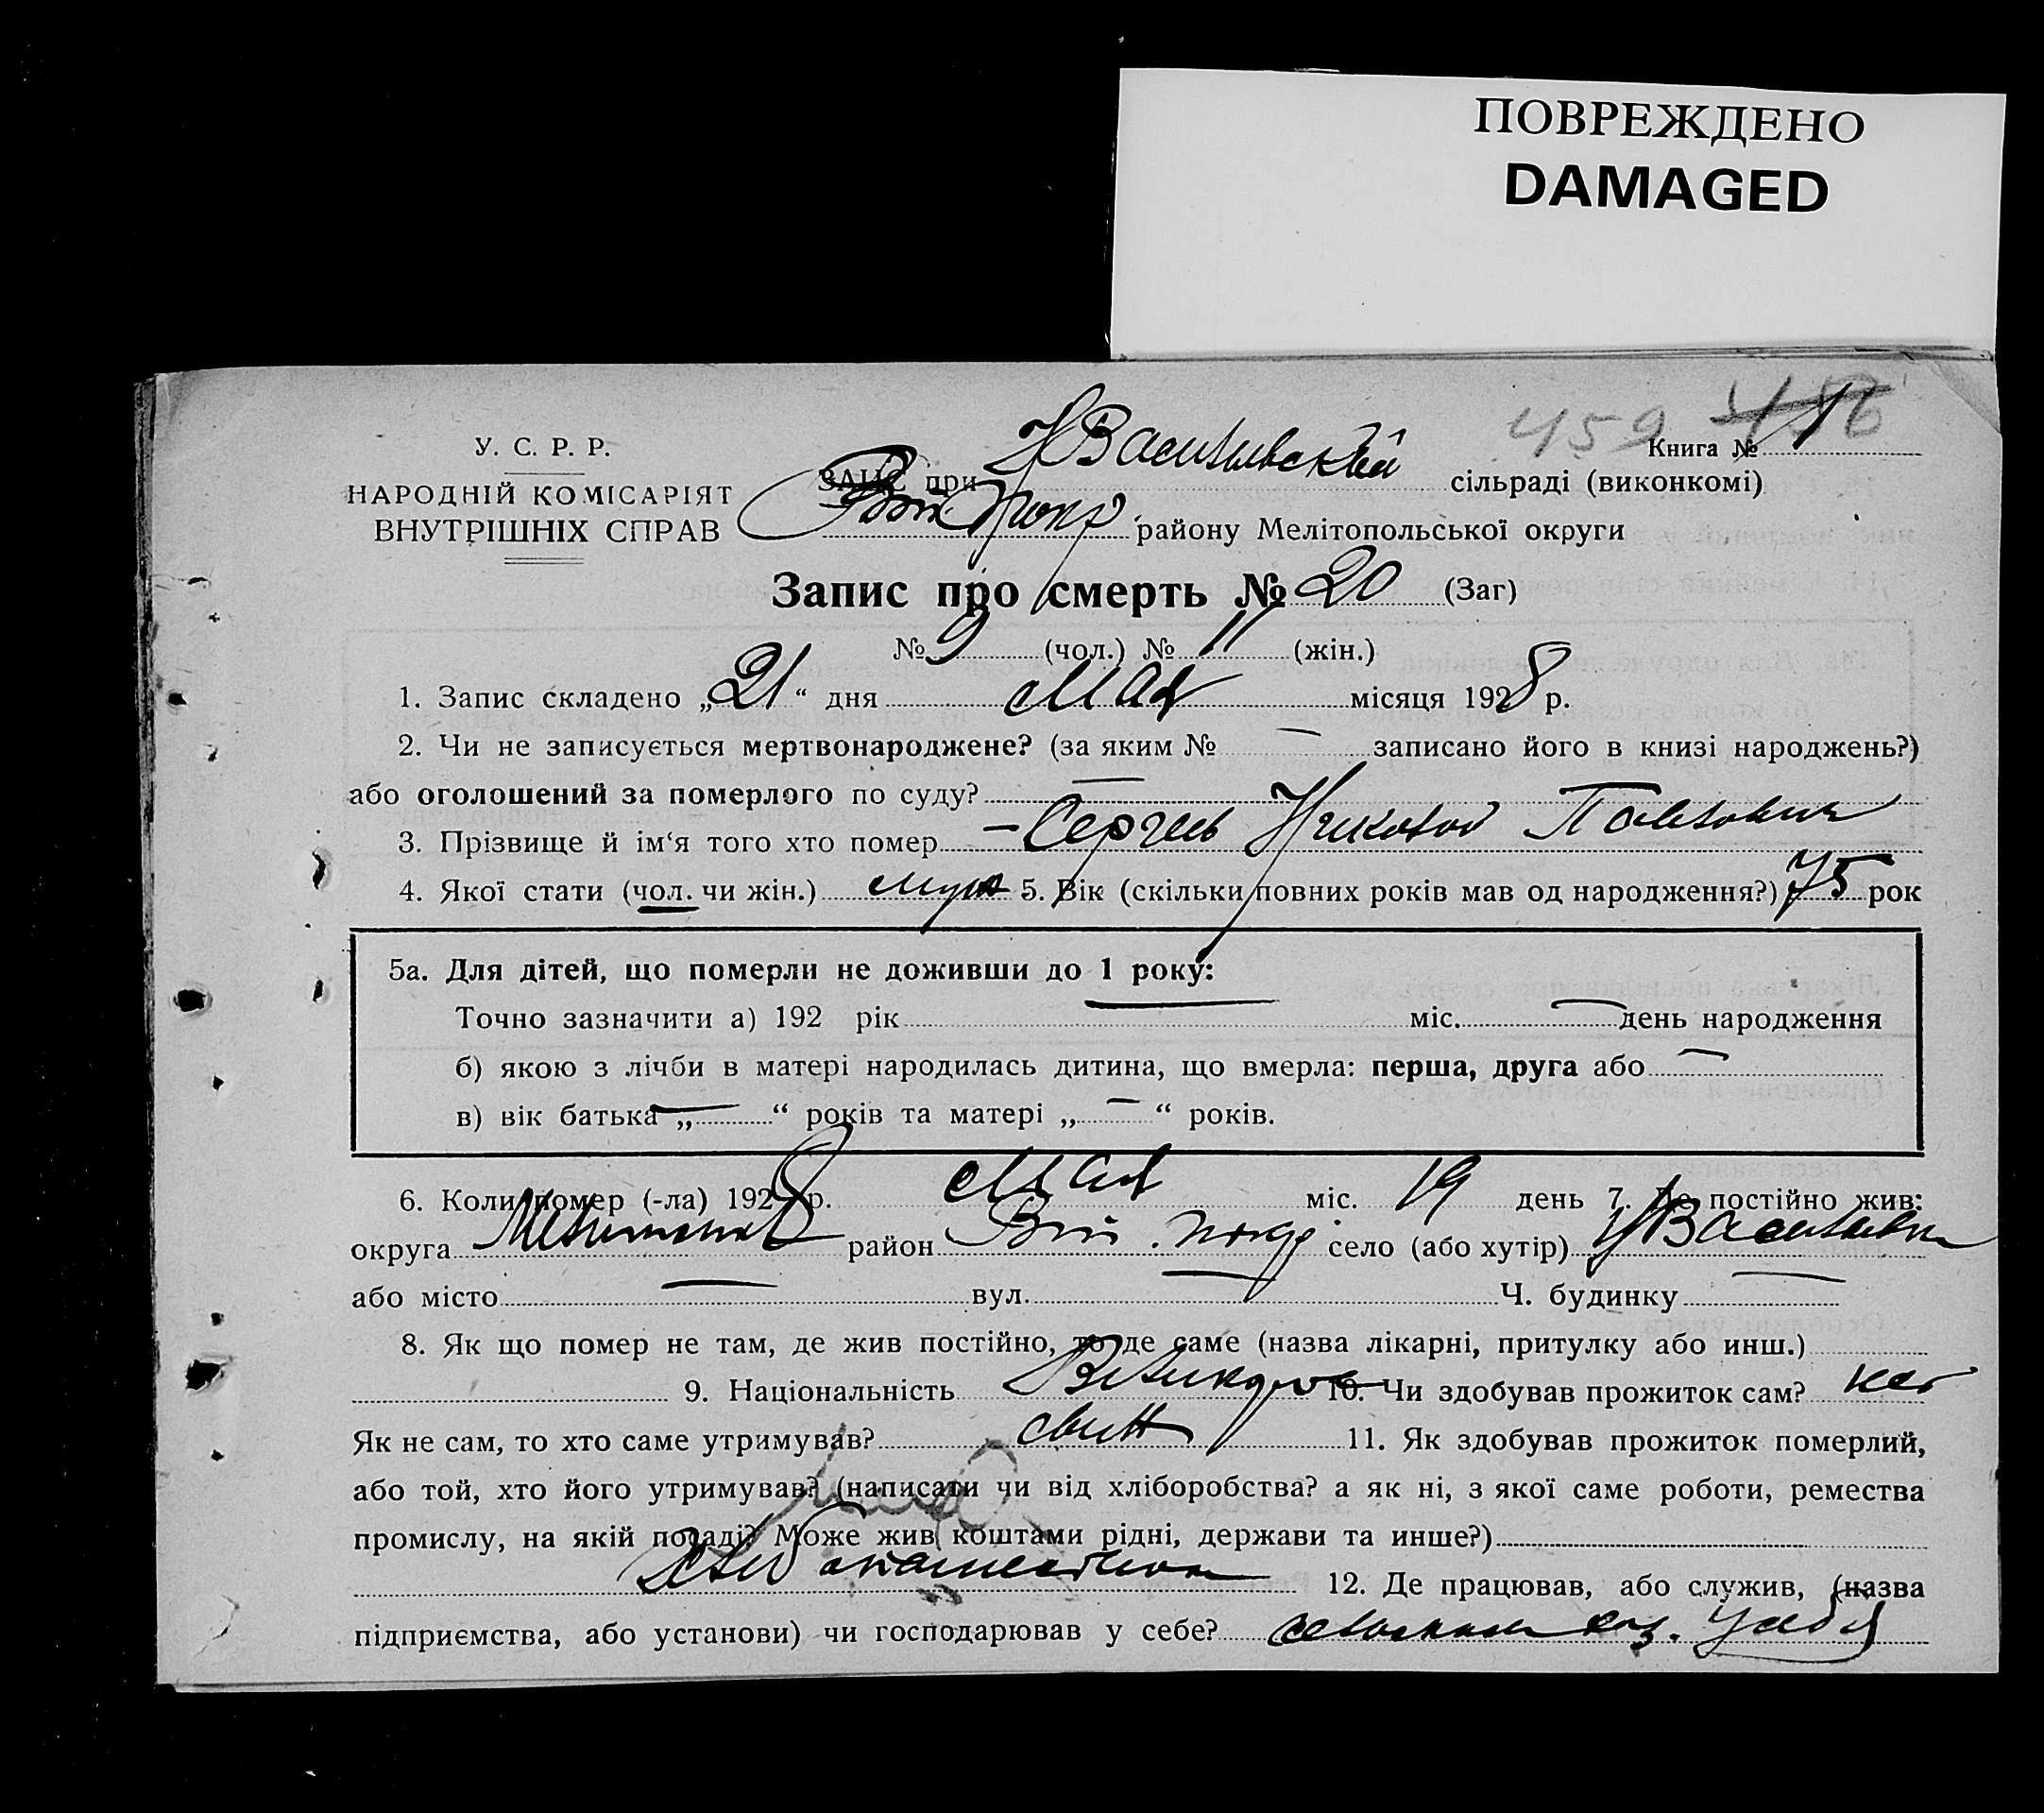 ПОВРЕЖДЕНО
DAMAGED
459 456
У. С. Р. Р.
Книга № 1
НАРОДНІЙ КОМІСАРІЯТ
ВНУТРІШНІХ СПРАВ
ЗАЦС при НВасильевской сільраді (виконкомі)
району Мелітопольської округи
Запис про смерть № 20 (Заг)
№ 9 (чол.) № 11 (жін.)
1. Запис складено „21“ дня Мая місяця 1928 р.
2. Чи не записується мертвонароджене? (за яким № — записано його в книзі народжень?)
або оголошений за померлого по суду? —
3. Прізвище й ім'я того хто помер – Сергеев Николай Павлович
4. Якої стати (чол. чи жін.) муж 5. Вік (скільки повних років мав од народження?) 75 рок
5а. Для дітей, що померли не доживши до 1 року:
Точно зазначити а) 192 рік — міс. — день народження
б) якою з лічби в матері народилась дитина, що вмерла: перша, друга або —
в) вік батька „—“ років та матері „—“ років.
6. Коли помер (-ла) 1928 р. Мая міс. 19 день 7. Де постійно жив:
округа Мелитоп район село (або хутір) НВасильевка
або місто — вул. — Ч. будинку —
8. Як що помер не там, де жив постійно, то де саме (назва лікарні, притулку або инш.)
9. Національність 10. Чи здобував прожиток сам? нет
Як не сам, то хто саме утримував? сын 11. Як здобував прожиток померлий,
або той, хто його утримував? (написати чи від хліборобства? а як ні, з якої саме роботи, ремества
промислу, на якій посаді? Може жив коштами рідні, держави та инше?)
хлебопашество 12. Де працював, або служив, (назва
підприємства, або установи) чи господарював у себе? сельским хоз. у себя